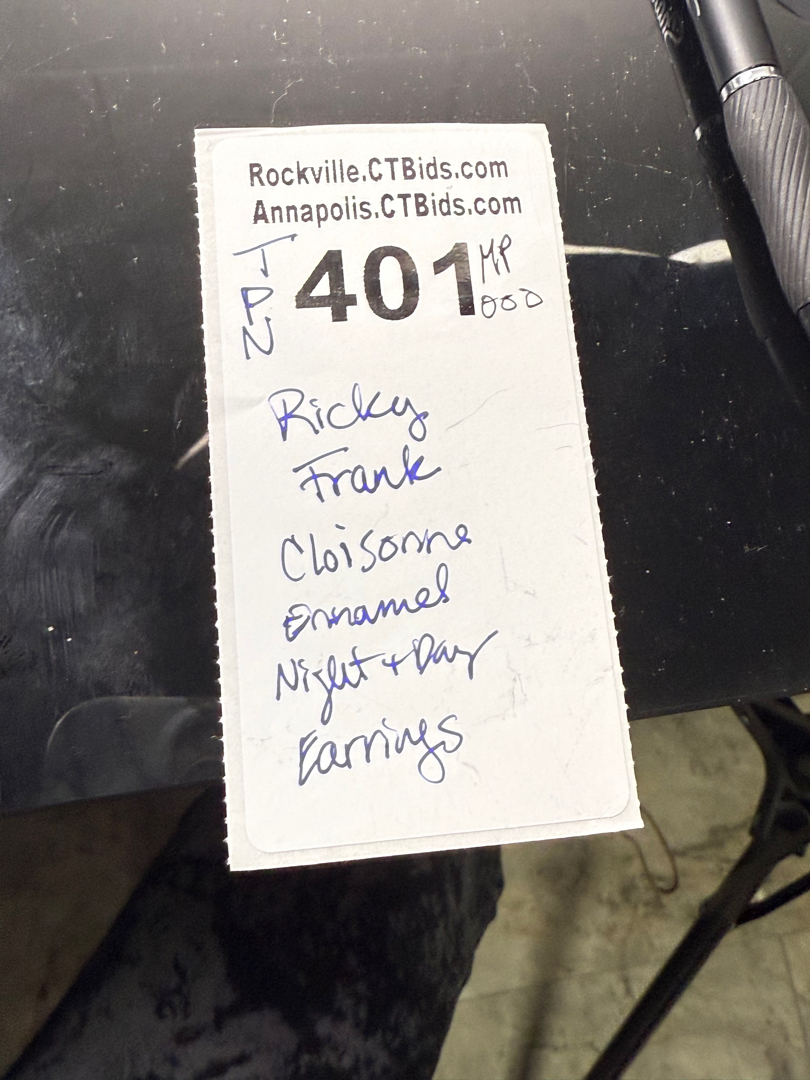 Rockville.CTBids.com
Annapolis.CTBids.com
TPN
401
MP
000
Ricky
Frank
Cloisonne
Ennamel
Night + Day
Earrings